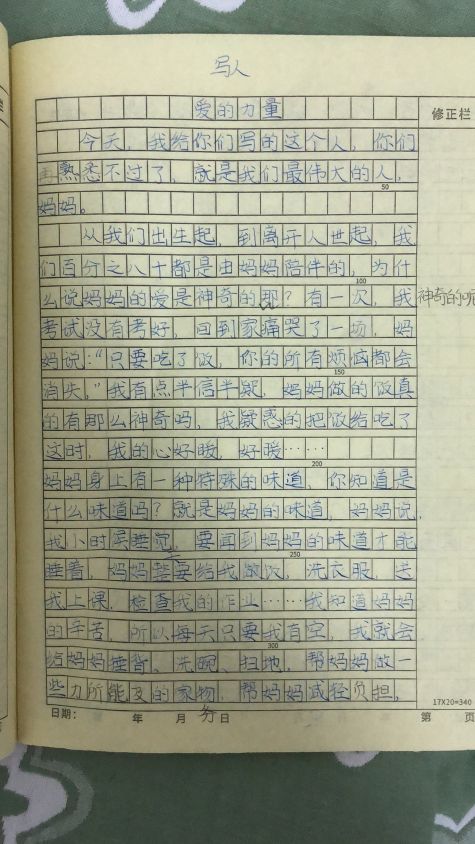 写人
爱的力量
修正栏
今天，我给你们写的这个人，你们
再熟悉不过了，就是我们最伟大的人，
50
妈妈。
从我们出生起，到离开人世起，我
们百分之八十都是由妈妈陪伴的，为什
100
么说妈妈的爱是神奇的那？有一次，我
神奇的呢
考试没有考好，回到家痛哭了一场，妈
妈说：“只要吃了饭，你的所有烦恼都会
150
消失。”我有点半信半疑，妈妈做的饭真
的有那么神奇吗，我疑惑的把饭给吃了
这时，我的心好暖，好暖……
200
妈妈身上有一种特殊的味道，你知道是
什么味道吗？就是妈妈的味道，妈妈说，
我小时候睡觉，要闻到妈妈的味道才能
250
睡着，妈妈要给我做饭，洗衣服，送
我上课，检查我的作业……我知道妈妈
的辛苦，所以每天只要我有空，我就会
300
给妈妈捶背，洗碗、扫地，帮妈妈做一
些力所能及的家物，帮妈妈减轻负担，
务
17X20=340
日期： 年 月 日 第 页